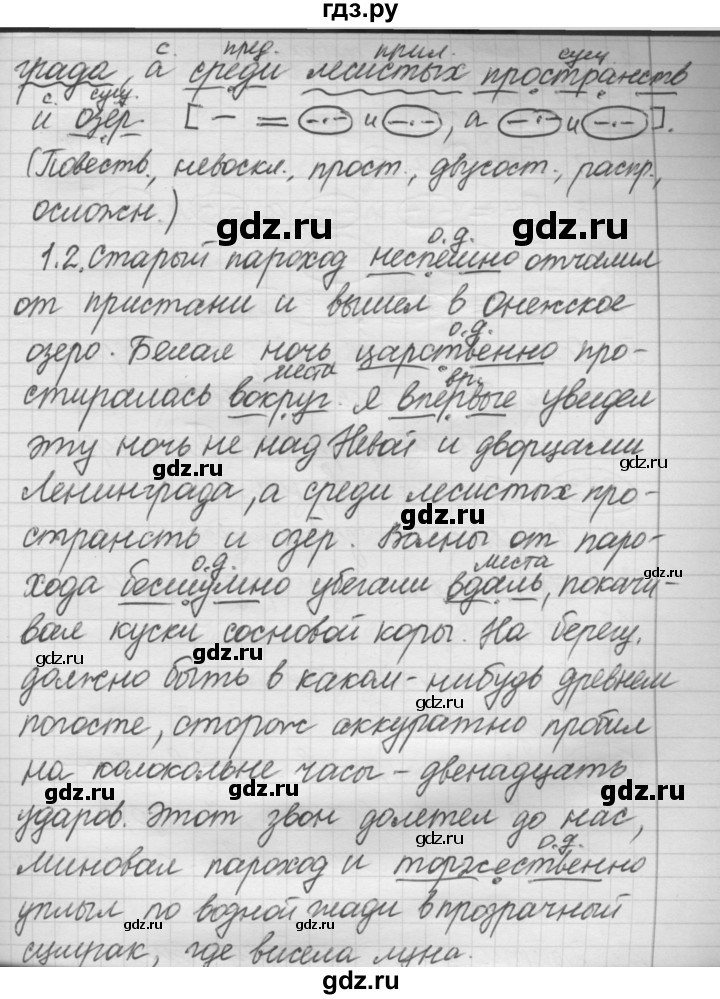 гдз.ру
с. пред. прил. сущ.
града, а среди лесистых пространств
с. сущ.
и озёр. [ – = –·– и –·–, а –·– и –·– ].
(Повеств., невоскл., прост., двусост., распр.,
осложн.)
gdz.ru gdz.ru
о.д.
1.2. Старый пароход неспешно отчалил
от пристани и вышел в Онежское
о.д.
озеро. Белая ночь царственно про-
места вр.
стиралась вокруг. Я впервые увидел
gdz.ru
эту ночь не над Невой и дворцами
gdz.ru gdz.ru
Ленинграда, а среди лесистых про-
gdz.ru
странств и озёр. Волны от паро-
о.д. места
хода бесшумно убегали вдаль, покачи-
gdz.ru gdz.ru
вая куски сосновой коры. На берегу,
gdz.ru gdz.ru
должно быть в каком-нибудь древнем
gdz.ru
погосте, сторож аккуратно пробил
на колокольне часы – двенадцать
gdz.ru gdz.ru gdz.ru
ударов. Этот звон долетел до нас,
gdz.ru
о.д.
миновал пароход и торжественно
уплыл по водной глади в прозрачный
gdz.ru gdz.ru
сумрак, где висела луна.
gdz.ru gdz.ru
gdz.ru